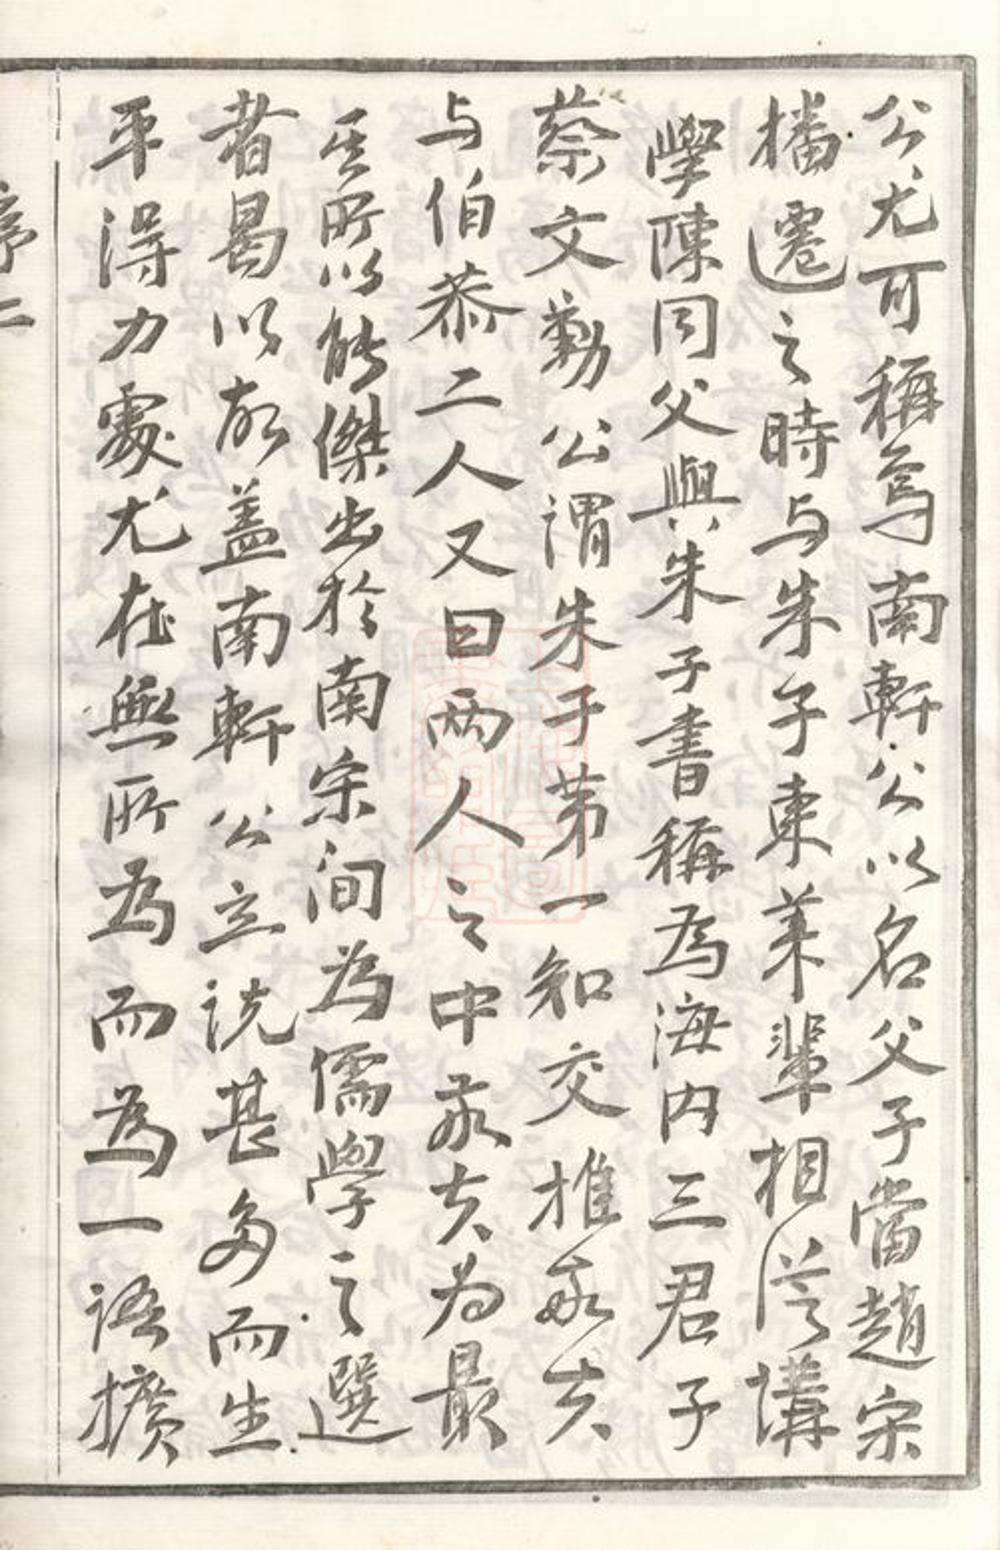 公尤可稱焉南軒公以名父子當趙宋
播遷之時与朱子東莱輩相從講
學陳同父與朱子書稱為海内三君子
蔡文勤公謂朱子第一知交推敬夫
与伯恭二人又曰两人之中敬夫为最
其所以能傑出於南宋间為儒學之選
者曷以故盖南軒公立説甚多而生
平得力處尤在無所為而為一語擴
序二